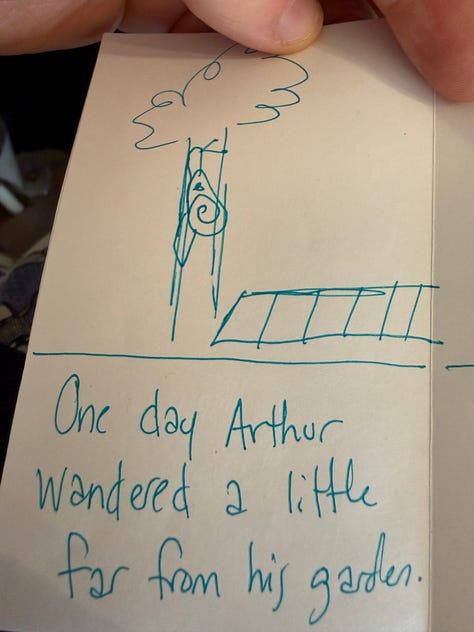 One day Arthur
Wandered a little
far from his garden.